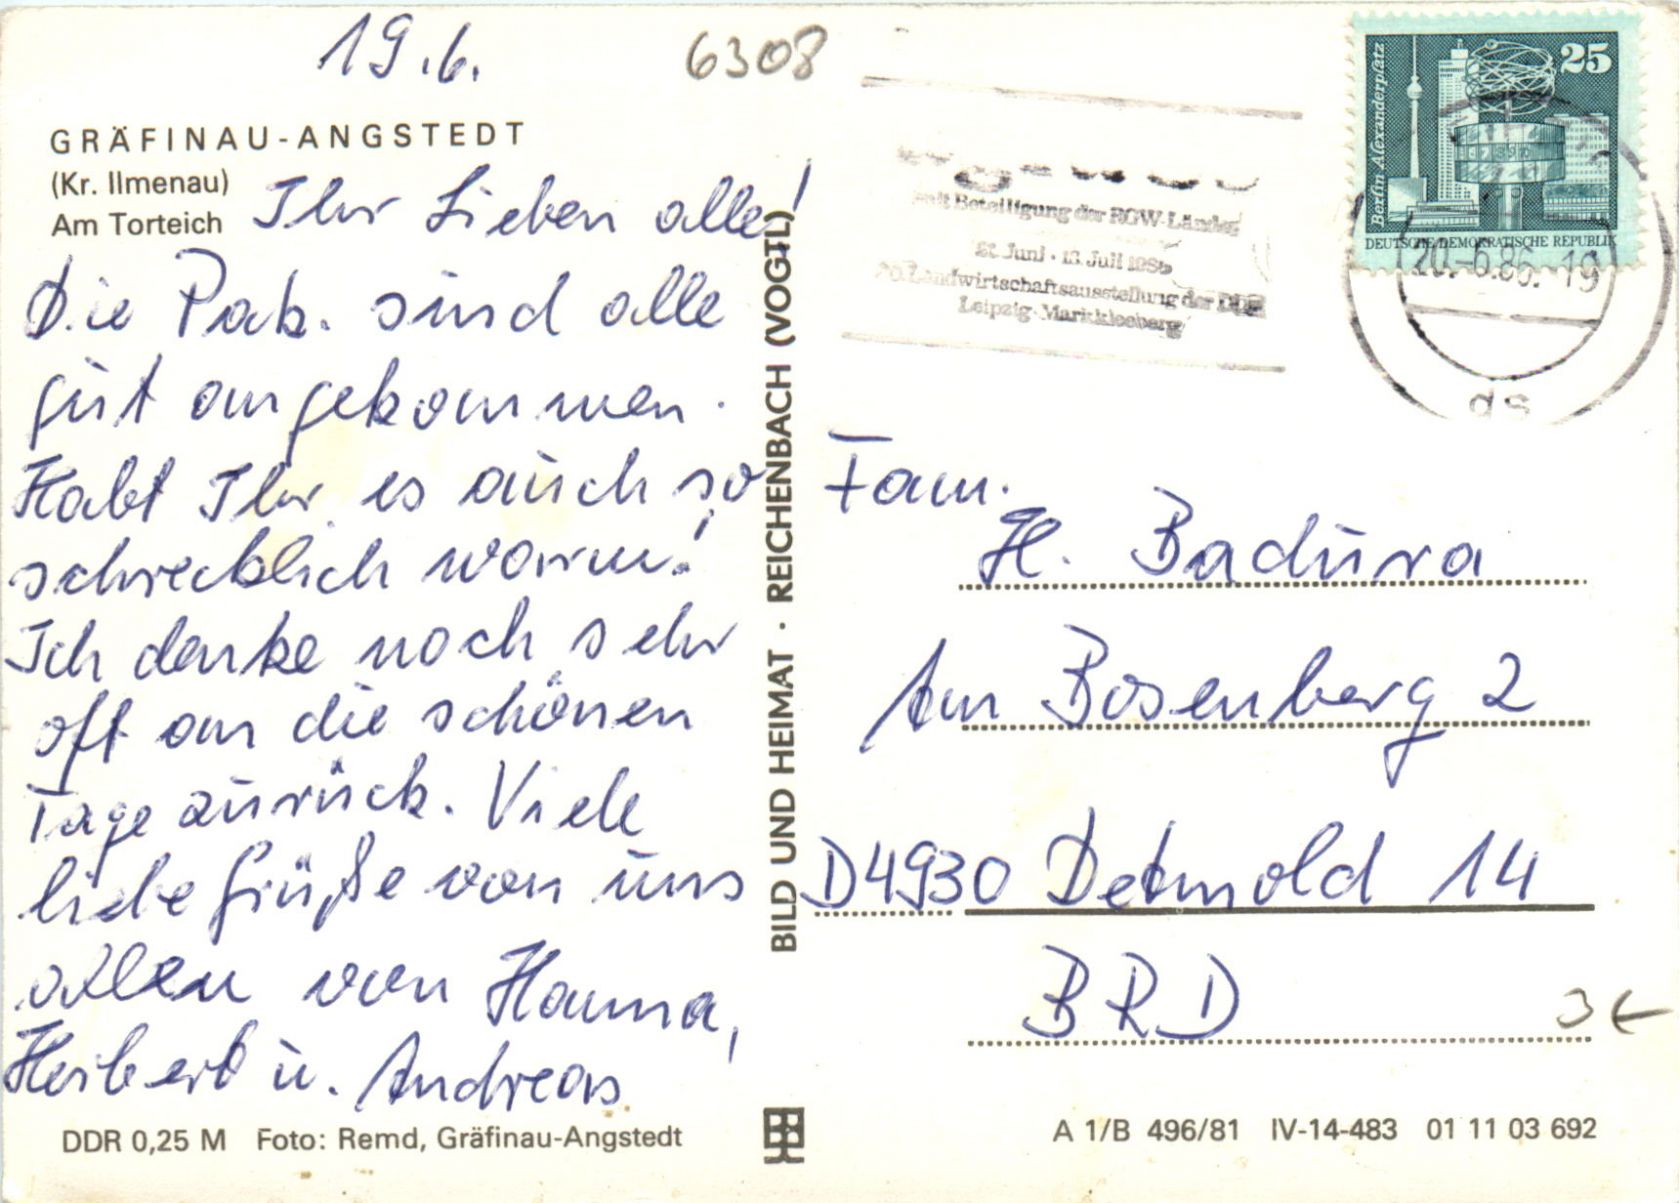 19.6.
6308
GRÄFINAU-ANGSTEDT
(Kr. Ilmenau)
Am Torteich
Ihr Lieben alle!
Die Pak. sind alle
gut angekommen.
Habt Ihr es auch so
schrecklich warm!
Ich denke noch sehr
oft an die schönen
Tage zurück. Viele
liebe Grüße von uns
allen von Hanna,
Heribert u. Andreas
DDR 0,25 M Foto: Remd, Gräfinau-Angstedt
BILD UND HEIMAT · REICHENBACH (VOGTL)
mit Beteiligung der RGW-Länder
Juni · 13. Juli 1986
Landwirtschaftsausstellung der DDR
Leipzig-Markkleeberg
25
Berlin Alexanderplatz
DEUTSCHE DEMOKRATISCHE REPUBLIK
20.-6.86.-19
ds
Fam.
H. Badura
Am Bosenberg 2
D4930 Detmold 14
BRD
A 1/B 496/81 IV-14-483 01 11 03 692